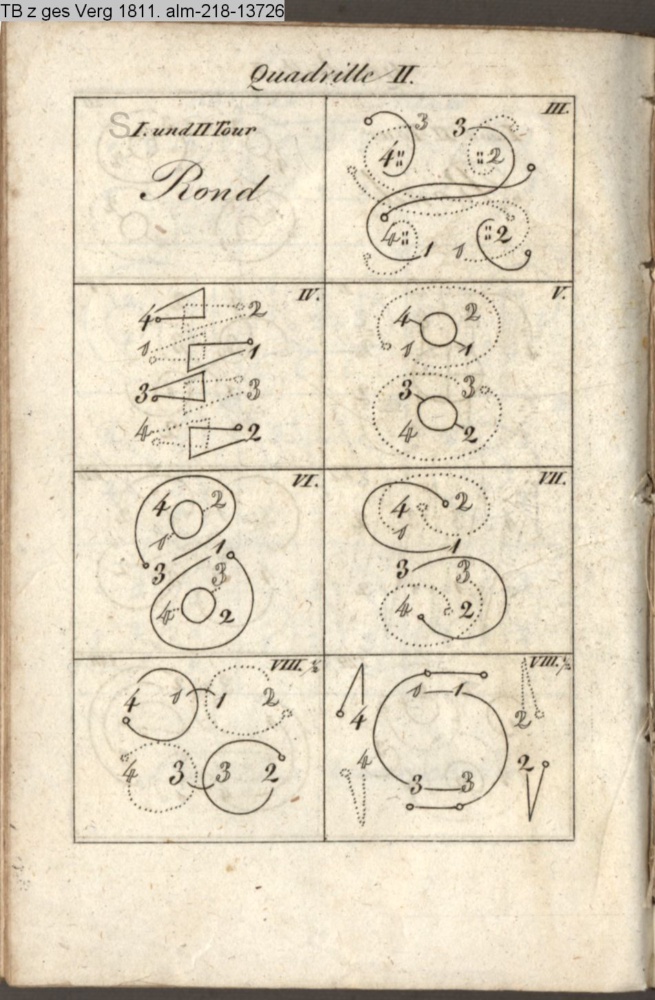 TB z ges Verg 1811. alm-218-13726
Quadrille II.
S I. und II Tour
Rond
III.
3 3
4 2
4 2
1 1
IV.
4 2
1 1
3 3
4 2
V.
4 2
1 1
3 3
4 2
VI.
4 2
1 1
3 3
4 2
VII.
4 2
1 1
3 3
4 2
VIII. ½
4 1 1 2
4 3 3 2
VIII. ½
1 1
4 2
4 2
3 3